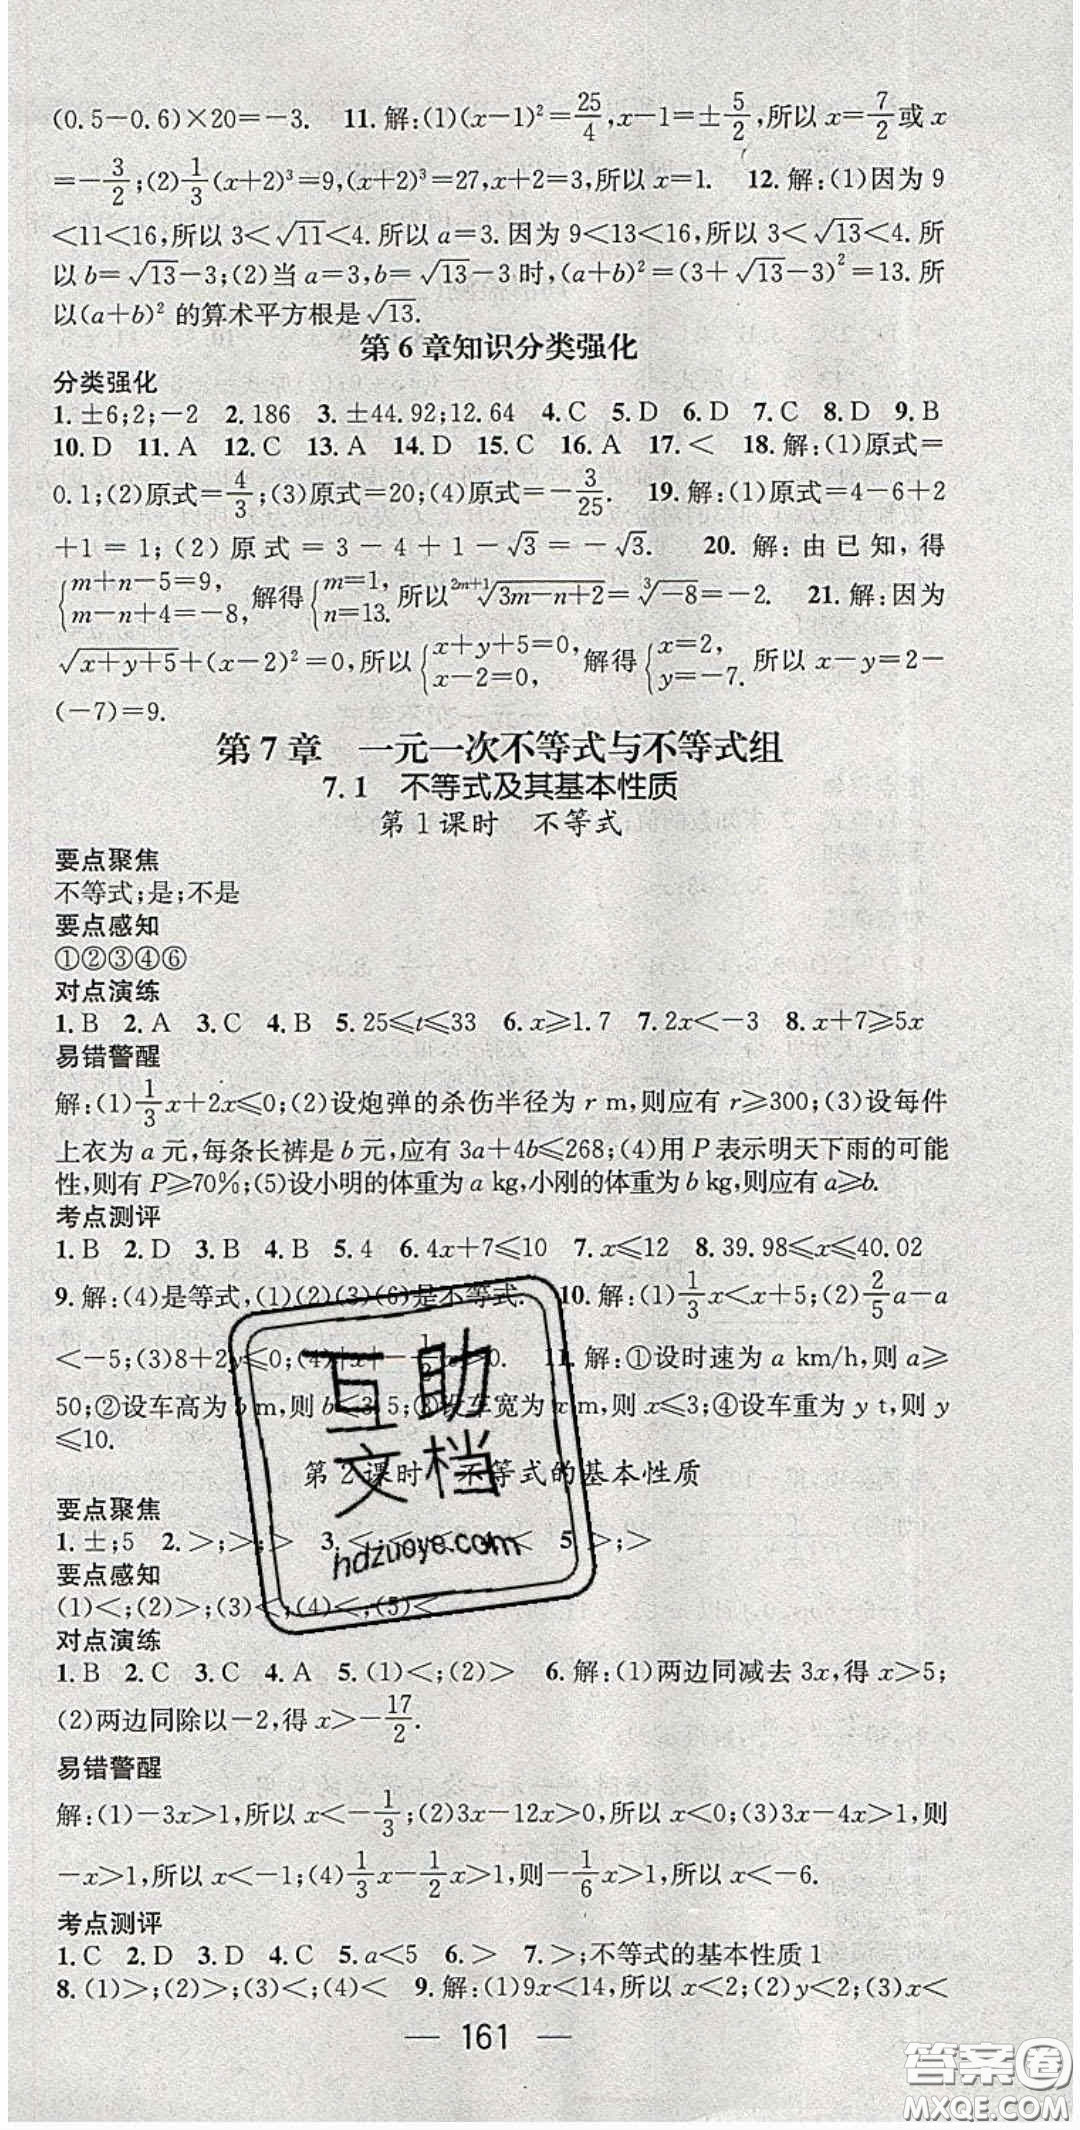 (0.5－0.6)×20＝－3.　11.解:(1)(x－1)²＝25/4,x－1＝±5/2,所以 x＝7/2或 x
＝－3/2;(2)1/3(x＋2)³＝9,(x＋2)³＝27,x＋2＝3,所以 x＝1.　12.解:(1)因为 9
＜11＜16,所以 3＜√11＜4.所以 a＝3.因为 9＜13＜16,所以 3＜√13＜4.所
以 b＝√13－3;(2)当 a＝3,b＝√13－3 时,(a＋b)²＝(3＋√13－3)²＝13.所
以(a＋b)² 的算术平方根是√13.
第 6 章知识分类强化
分类强化
1.±6;2;－2　2.186　3.±44.92;12.64　4.C　5.D　6.D　7.C　8.D　9.B
10.D　11.A　12.C　13.A　14.D　15.C　16.A　17.＜　18.解:(1)原式＝
0.1;(2)原式＝4/3;(3)原式＝20;(4)原式＝－3/25.　19.解:(1)原式＝4－6＋2
＋1＝1;(2)原式＝3－4＋1－√3＝－√3.　20.解:由已知,得
{m＋n－5＝9, m－n＋4＝－8, 解得{m＝1, n＝13. 所以 ²ᵐ⁺¹√(3m－n＋2)＝³√(－8)＝－2.　21.解:因为
√(x＋y＋5)＋(x－2)²＝0,所以{x＋y＋5＝0, x－2＝0, 解得{x＝2, y＝－7. 所以 x－y＝2－
(－7)＝9.
第 7 章　一元一次不等式与不等式组
7.1　不等式及其基本性质
第 1 课时　不等式
要点聚焦
不等式;是;不是
要点感知
①②③④⑥
对点演练
1.B　2.A　3.C　4.B　5.25≤t≤33　6.x≥1.7　7.2x＜－3　8.x＋7≥5x
易错警醒
解:(1)1/3x＋2x≤0;(2)设炮弹的杀伤半径为 r m,则应有 r≥300;(3)设每件
上衣为 a 元,每条长裤是 b 元,应有 3a＋4b≤268;(4)用 P 表示明天下雨的可能
性,则有 P≥70%;(5)设小明的体重为 a kg,小刚的体重为 b kg,则应有 a≥b.
考点测评
1.B　2.D　3.B　4.B　5.4　6.4x＋7≤10　7.x≤12　8.39.98≤x≤40.02
9.解:(4)是等式,(1)(2)(3)(6)是不等式.　10.解:(1)1/3x＜x＋5;(2)2/5a－a
＜－5;(3)8＋2y≤0;(4) 0.　11.解:①设时速为 a km/h,则 a≥
50;②设车高为 b m,则 b≤3.5;③设车宽为 x m,则 x≤3;④设车重为 y t,则 y
≤10.
第 2 课时　不等式的基本性质
要点聚焦
1.±;5　2.＞;＞;＞　3.＜ 5.＞;＞
要点感知
(1)＜;(2)＞;(3)＜;(4)＜;(5)＜
对点演练
1.B　2.C　3.C　4.A　5.(1)＜;(2)＞　6.解:(1)两边同减去 3x,得 x＞5;
(2)两边同除以－2,得 x＞－17/2.
易错警醒
解:(1)－3x＞1,所以 x＜－1/3;(2)3x－12x＞0,所以 x＜0;(3)3x－4x＞1,则
－x＞1,所以 x＜－1;(4)1/3x－1/2x＞1,则－1/6x＞1,所以 x＜－6.
考点测评
1.C　2.D　3.D　4.C　5.a＜5　6.＞　7.＞;不等式的基本性质 1
8.(1)＞;(2)＞;(3)＜;(4)＜　9.解:(1)9x＜14,所以 x＜2;(2)y＜2;(3)x＜
— 161 —
互助
文档
hdzuoye.com
答案圈
MXQE.COM